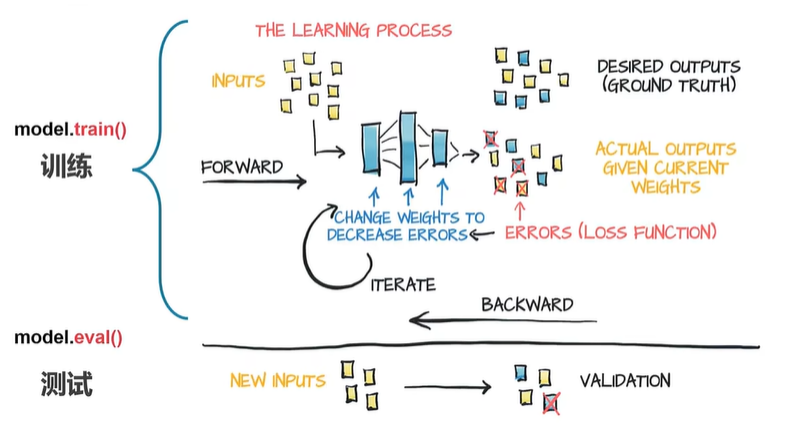 THE LEARNING PROCESS
INPUTS
DESIRED OUTPUTS
(GROUND TRUTH)
model.train()
训练
FORWARD
ACTUAL OUTPUTS
GIVEN CURRENT
WEIGHTS
CHANGE WEIGHTS TO
DECREASE ERRORS
ERRORS (LOSS FUNCTION)
ITERATE
BACKWARD
model.eval()
测试
NEW INPUTS
VALIDATION